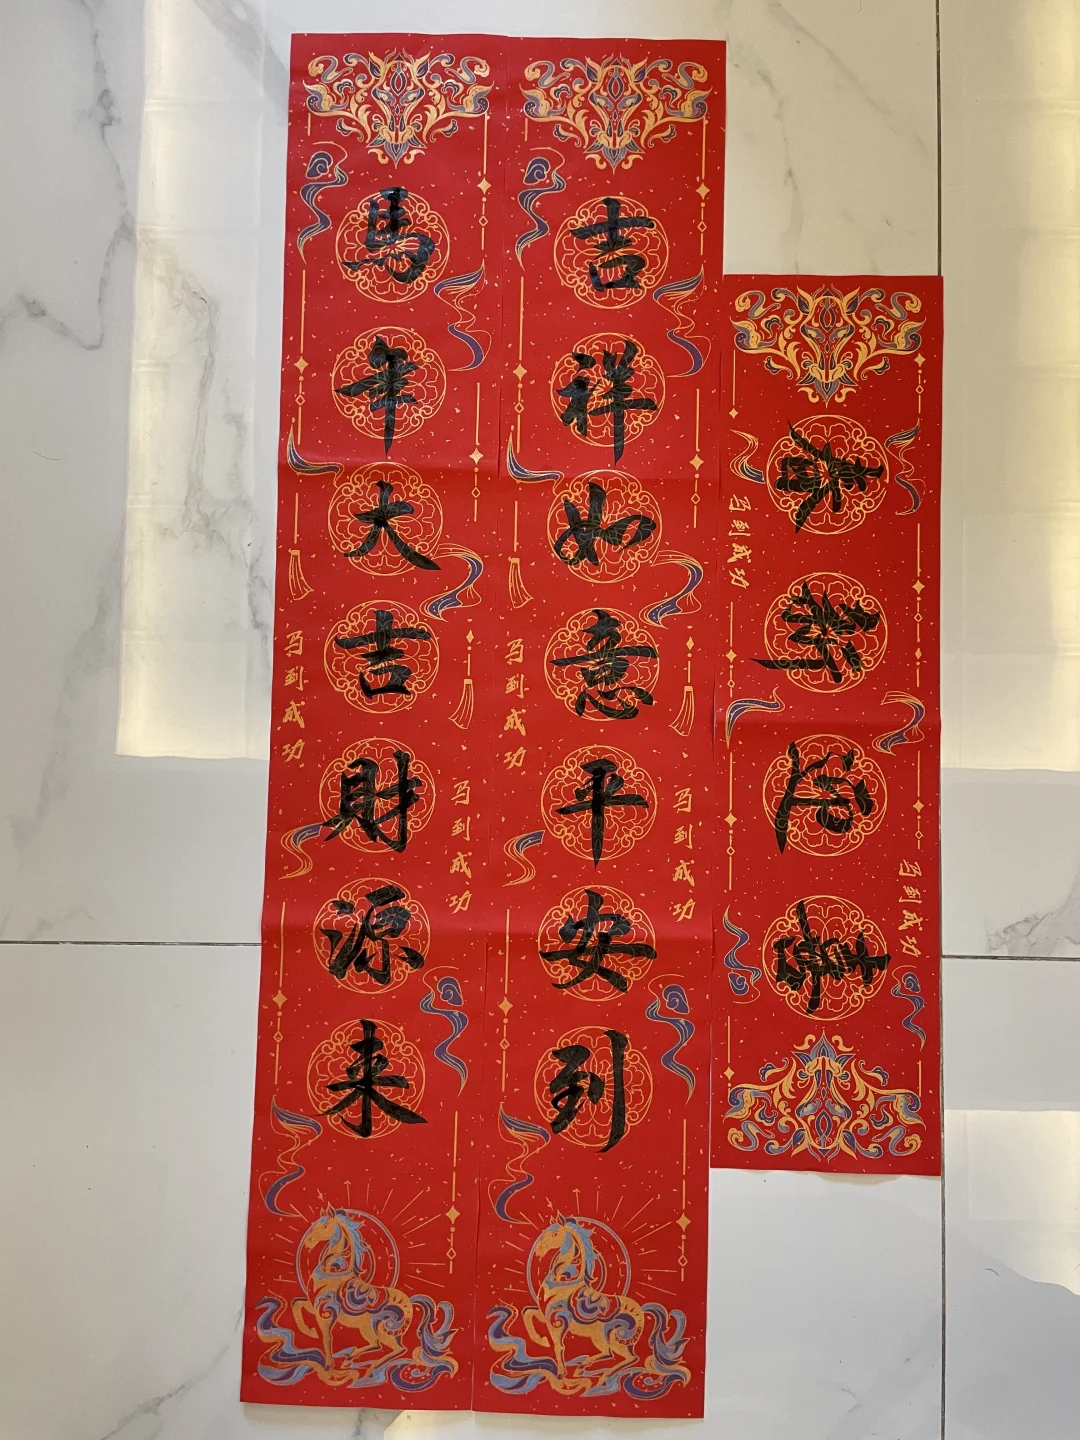 馬年大吉財源来
吉祥如意平安到
马到成功
马到成功
马到成功
马到成功
马到成功
马到成功